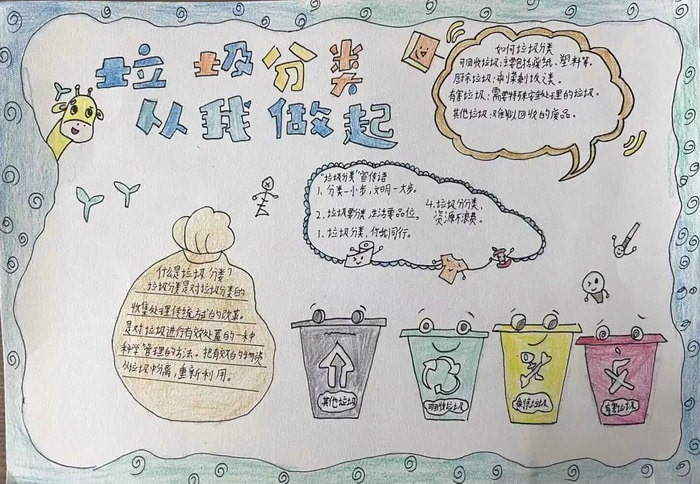 垃圾分类
从我做起
如何垃圾分类
可回收垃圾:主要包括废纸、塑料等。
厨余垃圾:剩菜剩饭之类。
有害垃圾:需要特殊安全处理的垃圾。
其他垃圾:难以回收的废品。
“垃圾分类”宣传语
1、分类一小步,文明一大步。
2、垃圾要分类,生活要品位。
1、垃圾分类,你我同行。
4、垃圾分分类,
资源不浪费。
什么是垃圾分类?
垃圾分类是对垃圾分类的
收集处理传统方式的改革。
是对垃圾进行有效处置的一种
科学管理的方法。把有效的物质
从垃圾中分离重新利用。
其他垃圾
可回收垃圾
垃圾
有害垃圾